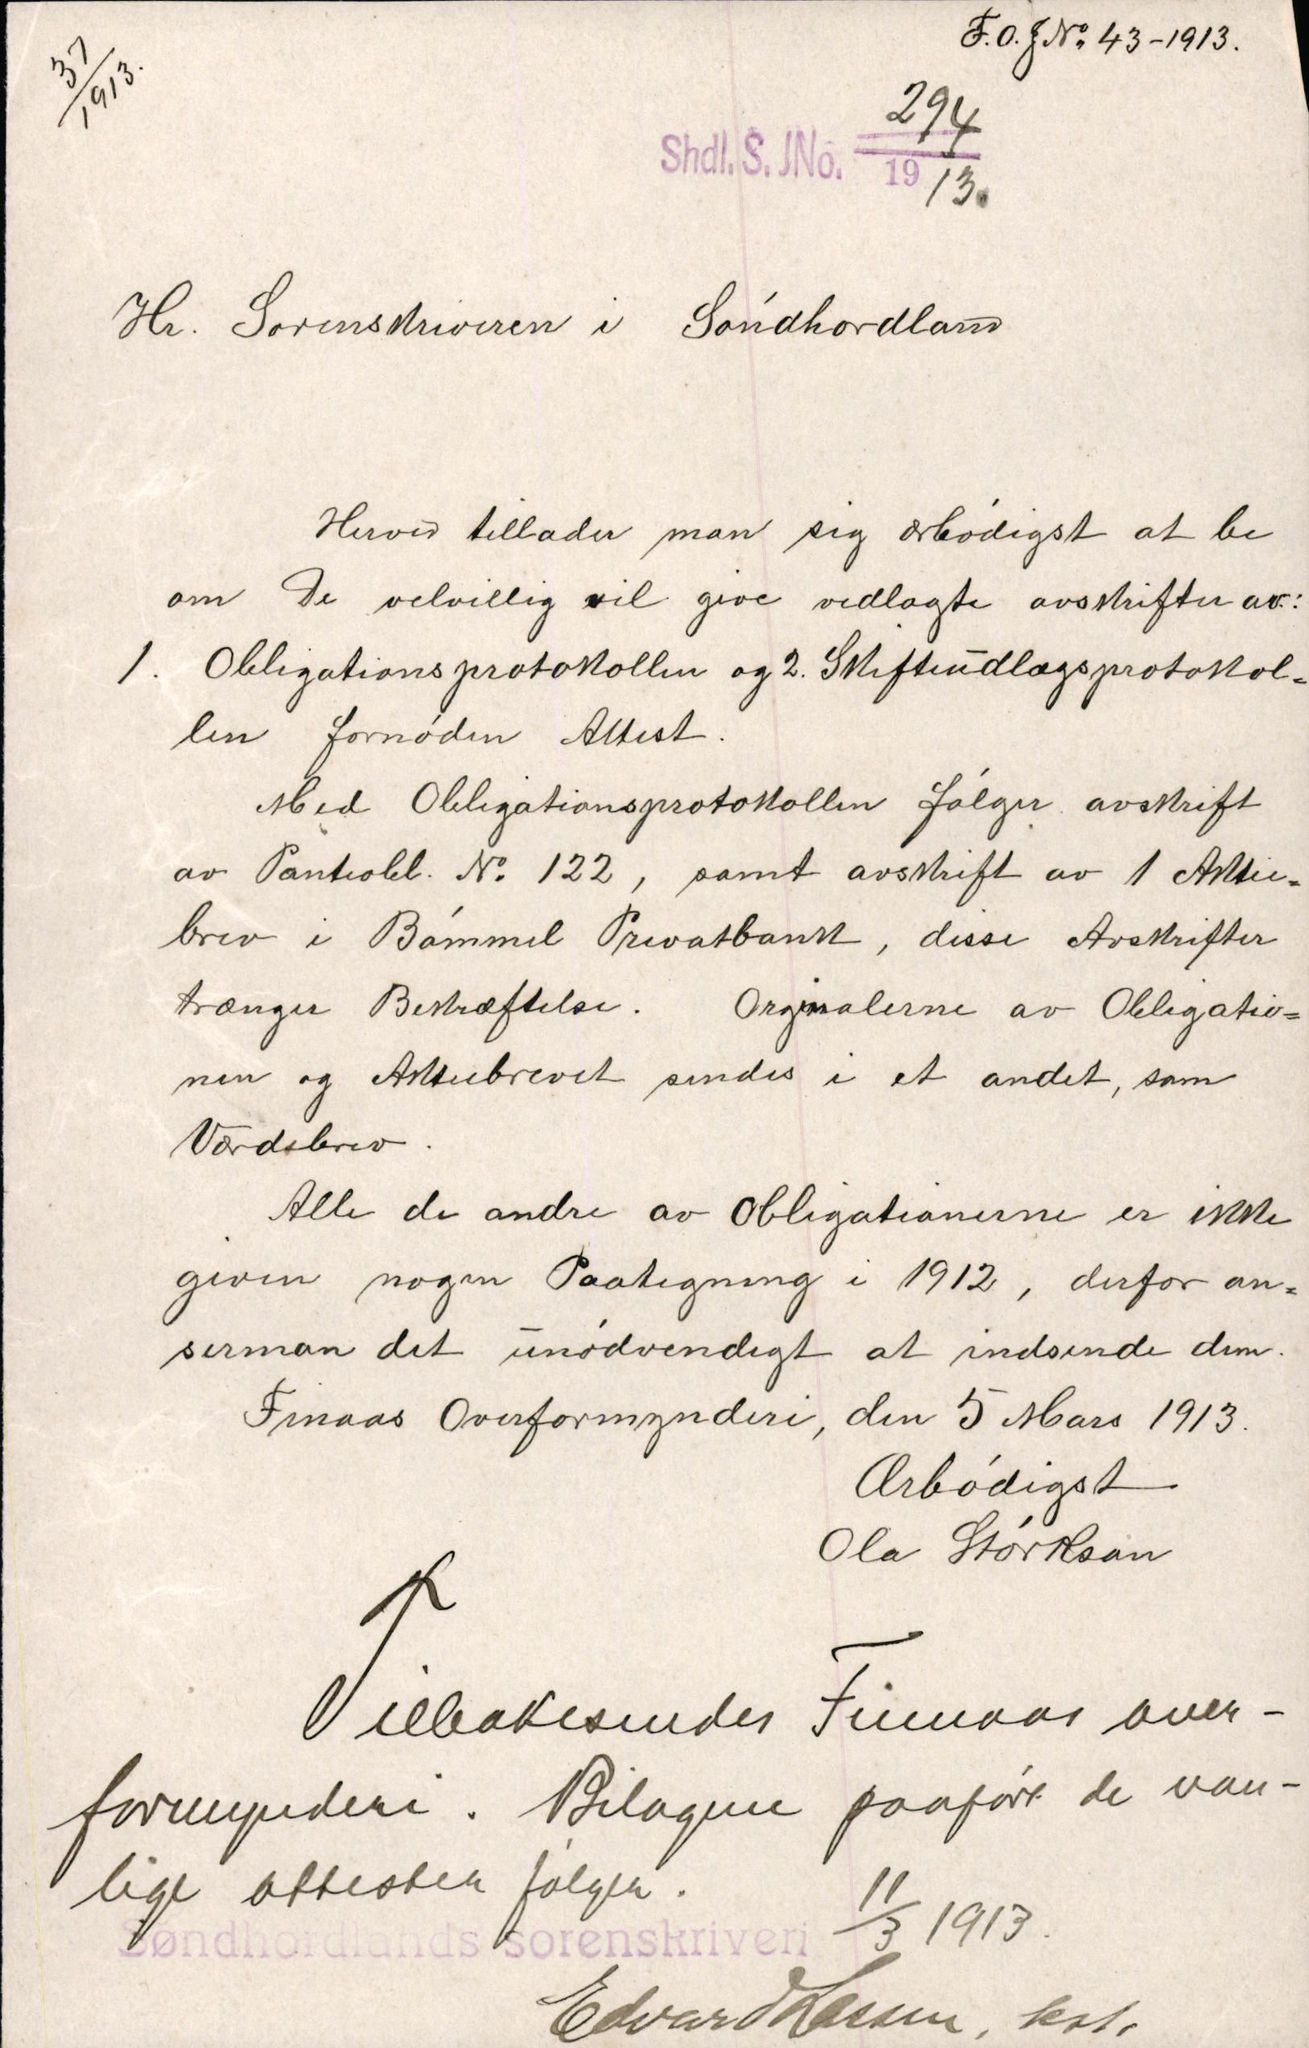 37/1913.
F.O.J No. 43-1913.
Shdl. S. JNo. 294/1913.
Hr. Sorenskriveren i Søndhordland
Herved tillader man sig ærbødigst at be
om De velvillig vil give vedlagte avskrifter av:
1. Obligationsprotokollen og 2. Skifteudlægsprotokol=
len fornøden Attest.
Med Obligationsprotokollen følger avskrift
av Panteobl. No. 122, samt avskrift av 1 Aktie=
brev i Bømmel Privatbank, disse Avskrifter
trænger Bekræftelse. Orginalerne av Obligatio=
nen og Aktiebrevet sendes i et andet, som
Værdsbrev.
Alle de andre av Obligationerne er ikke
given nogen Paategning i 1912, derfor an=
serman det unødvendigt at indsende dem.
Finaas Overformynderi, den 5 Mars 1913.
Ærbødigst
Ola Størkson
Tilbakesendes Finnaas over-
formynderi. Bilagene paaført de van-
lige attester følger.
11/3 1913.
Søndhordlands sorenskriveri
Edvard Larsen, kst.